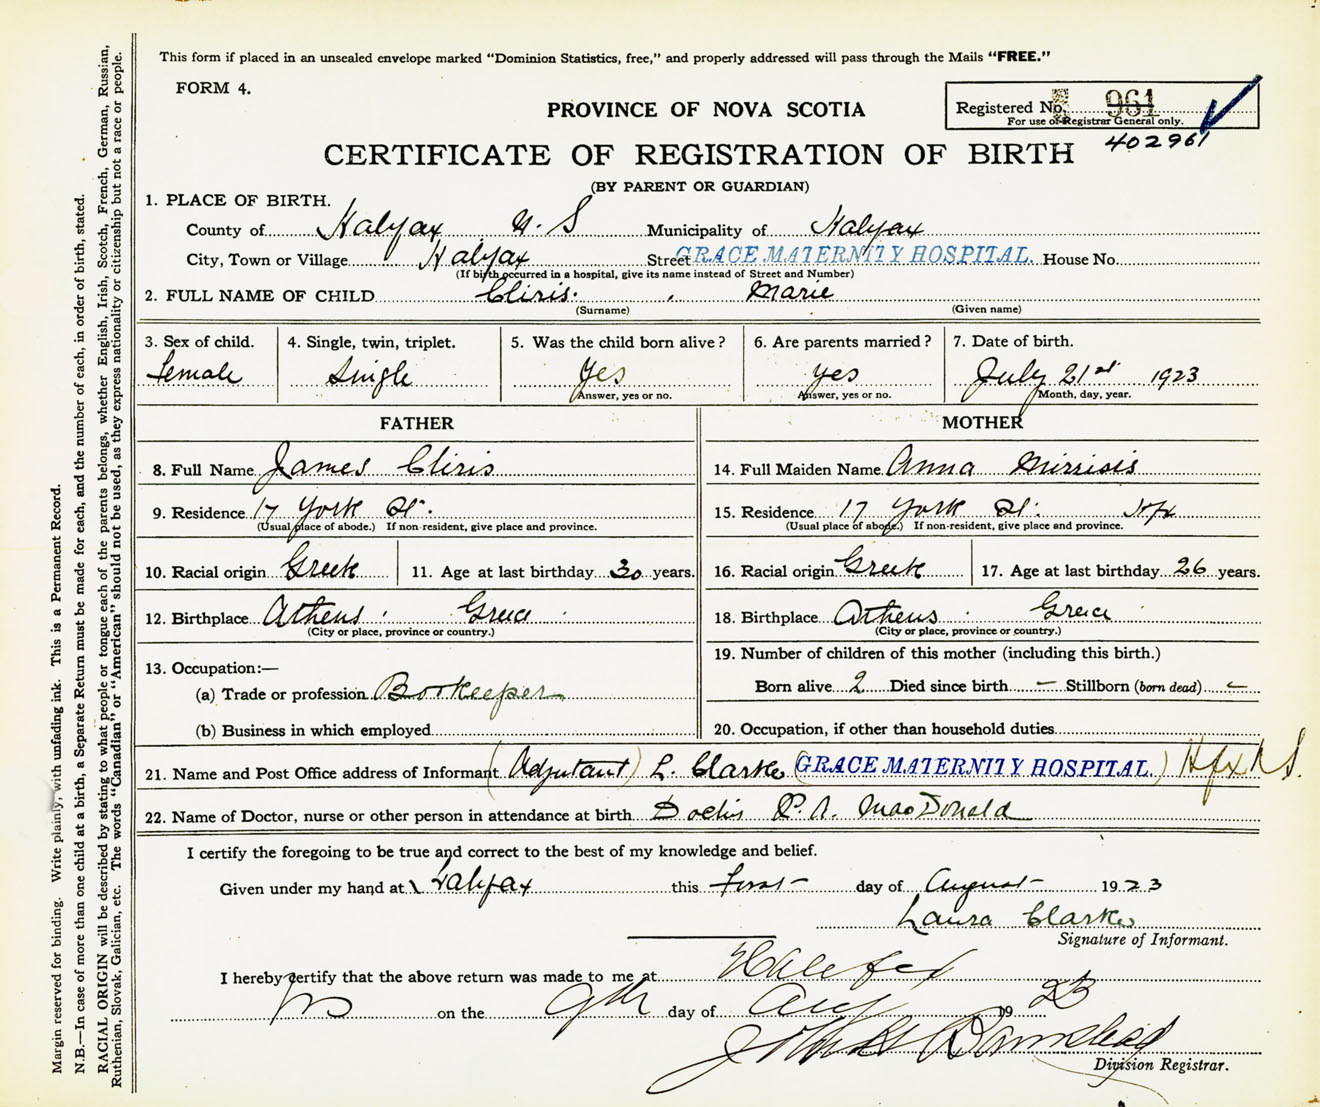 This form if placed in an unsealed envelope marked “Dominion Statistics, free,” and properly addressed will pass through the Mails “FREE.”
FORM 4.
PROVINCE OF NOVA SCOTIA
Registered No. 961
For use of Registrar General only.
402961
CERTIFICATE OF REGISTRATION OF BIRTH
(BY PARENT OR GUARDIAN)
1. PLACE OF BIRTH.
County of Halifax N. S Municipality of Halifax
City, Town or Village Halifax Street GRACE MATERNITY HOSPITAL. House No.
(If birth occurred in a hospital, give its name instead of Street and Number)
2. FULL NAME OF CHILD Cliris. Marie
(Surname) (Given name)
3. Sex of child. 4. Single, twin, triplet. 5. Was the child born alive? 6. Are parents married? 7. Date of birth.
Female Single Yes yes July 21st 1923
Answer, yes or no. Answer, yes or no. Month, day, year.
FATHER MOTHER
8. Full Name James Cliris 14. Full Maiden Name Anna Mirrisis
9. Residence 17 York St. 15. Residence 17 York St. Hfx
(Usual place of abode.) If non-resident, give place and province. (Usual place of abode.) If non-resident, give place and province.
10. Racial origin Greek 11. Age at last birthday 30 years. 16. Racial origin Greek 17. Age at last birthday 26 years.
12. Birthplace Athens Greece 18. Birthplace Athens Greece
(City or place, province or country.) (City or place, province or country.)
13. Occupation:— 19. Number of children of this mother (including this birth.)
(a) Trade or profession Bookeeper Born alive 2 Died since birth – Stillborn (born dead) –
(b) Business in which employed 20. Occupation, if other than household duties
21. Name and Post Office address of Informant (Adjutant) L. Clarke (GRACE MATERNITY HOSPITAL.) Hfx N S.
22. Name of Doctor, nurse or other person in attendance at birth Doctor P. A. MacDonald
I certify the foregoing to be true and correct to the best of my knowledge and belief.
Given under my hand at Halifax this First day of August 1923
Laura Clarke
Signature of Informant.
I hereby certify that the above return was made to me at Halifax
NS on the 9th day of Aug 1923
Division Registrar.
Margin reserved for binding. Write plainly, with unfading ink. This is a Permanent Record.
N.B.—In case of more than one child at a birth, a Separate Return must be made for each, and the number of each, in order of birth, stated.
RACIAL ORIGIN will be described by stating to what people or tongue each of the parents belongs, whether English, Irish, Scotch, French, German, Russian,
Ruthenian, Slovak, Galician, etc. The words “Canadian” or “American” should not be used, as they express nationality or citizenship but not a race or people.